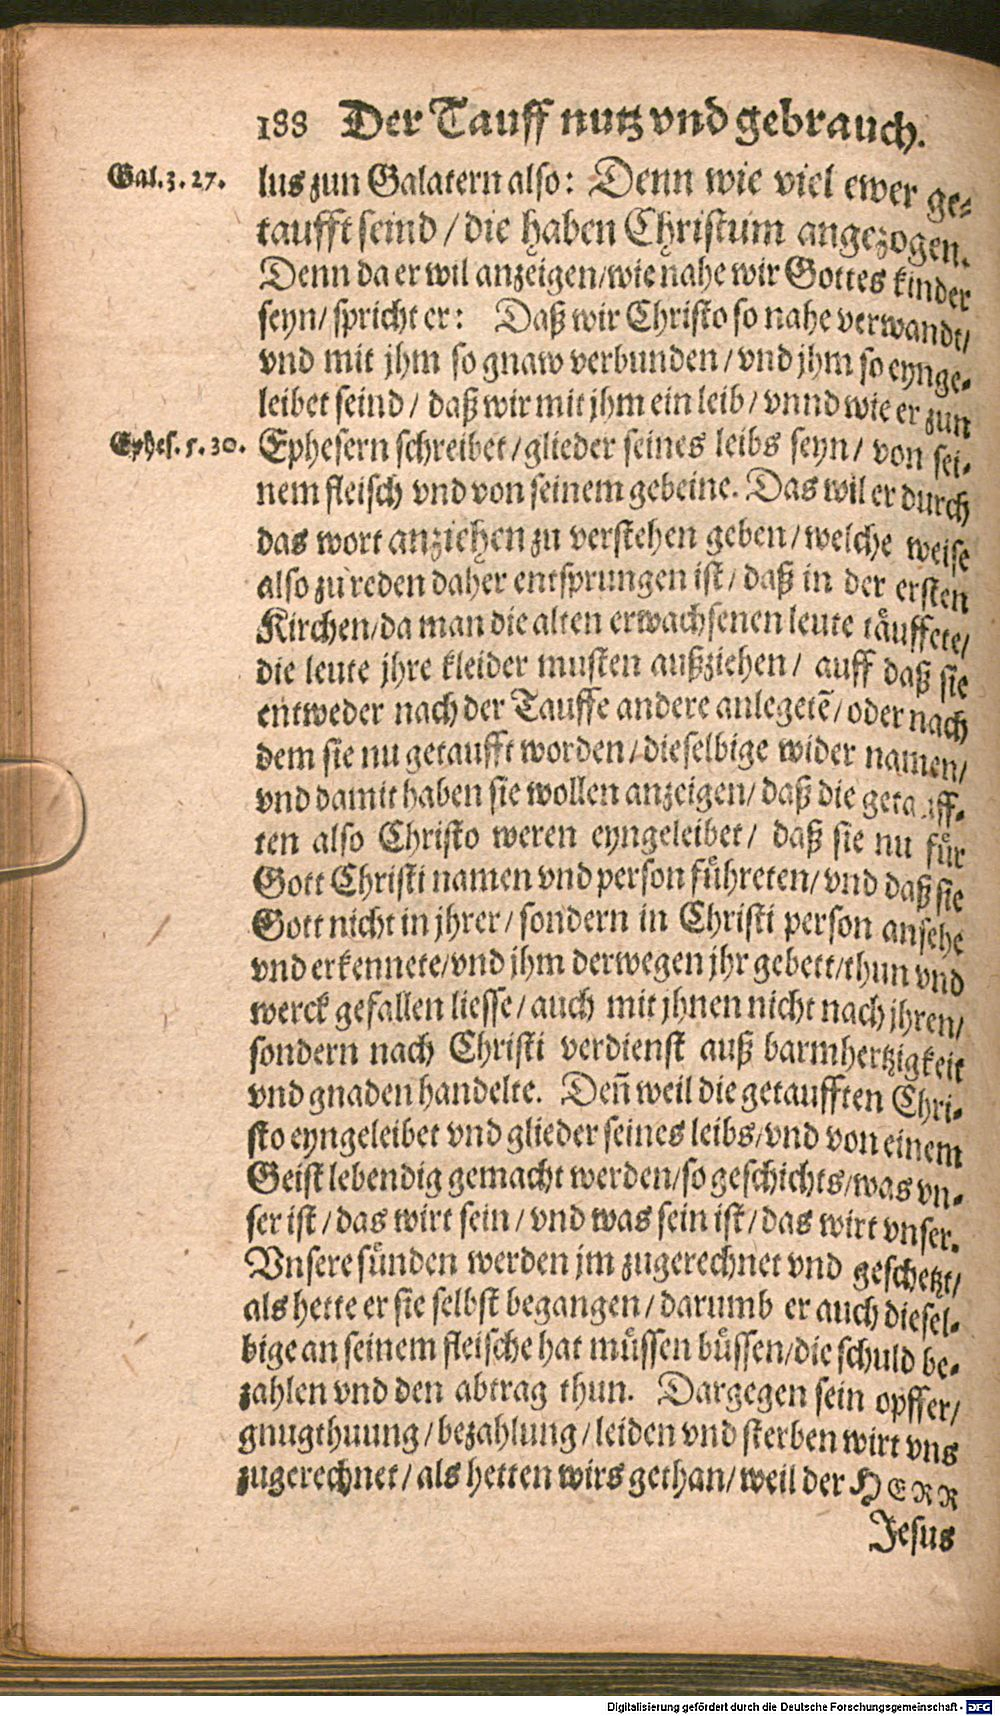 188 Der Tauff nutz vnd gebrauch.
Gal. 3. 27. lus zun Galatern also: Denn wie viel ewer ge-
taufft seind / die haben Christum angezogen.
Denn da er wil anzeigen/wie nahe wir Gottes kinder
seyn/ spricht er: Daß wir Christo so nahe verwandt/
vnd mit jhm so gnaw verbunden / vnd jhm so eynge-
leibet seind / daß wir mit jhm ein leib / vnnd wie er zun
Ephes. 5. 30. Ephesern schreibet / glieder seines leibs seyn / von sei-
nem fleisch vnd von seinem gebeine. Das wil er durch
das wort anziehen zu verstehen geben / welche weise
also zu reden daher entsprungen ist / daß in der ersten
Kirchen/da man die alten erwachsenen leute täuffete/
die leute jhre kleider musten außziehen / auff daß sie
entweder nach der Tauffe andere anlegetẽ / oder nach
dem sie nu getaufft worden / dieselbige wider namen/
vnd damit haben sie wollen anzeigen/ daß die getauff-
ten also Christo weren eyngeleibet / daß sie nu für
Gott Christi namen vnd person führeten/ vnd daß sie
Gott nicht in jhrer / sondern in Christi person ansehe
vnd erkennete/vnd jhm derwegen jhr gebett/thun vnd
werck gefallen liesse / auch mit jhnen nicht nach jhren/
sondern nach Christi verdienst auß barmhertzigkeit
vnd gnaden handelte. Deñ weil die getaufften Chri-
sto eyngeleibet vnd glieder seines leibs/vnd von einem
Geist lebendig gemacht werden/so geschichts/was vn-
ser ist / das wirt sein / vnd was sein ist / das wirt vnser.
Vnsere sünden werden jm zugerechnet vnd geschetzt/
als hette er sie selbst begangen / darumb er auch diesel-
bige an seinem fleische hat müssen büssen/die schuld be-
zahlen vnd den abtrag thun. Dargegen sein opffer/
gnugthuung / bezahlung / leiden vnd sterben wirt vns
zugerechnet / als hetten wirs gethan/ weil der HERR
Jesus
Digitalisierung gefördert durch die Deutsche Forschungsgemeinschaft - DFG